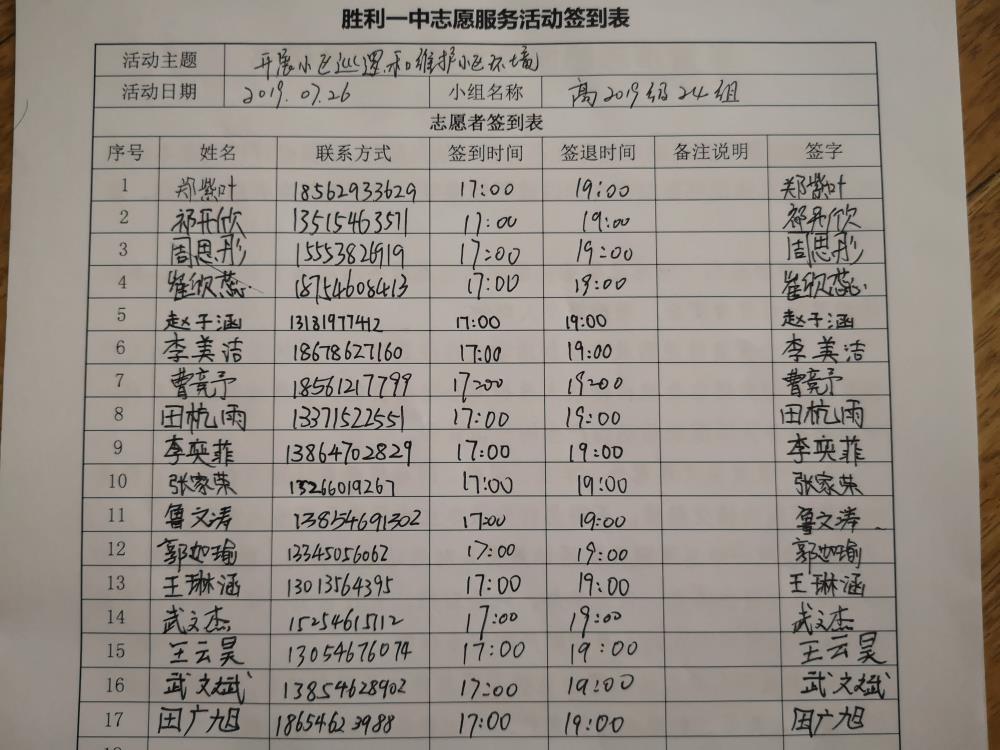 胜利一中志愿服务活动签到表
活动主题 开展小区巡逻和维护小区环境
活动日期 2019.07.26 小组名称 高2019级24组
志愿者签到表
序号 姓名 联系方式 签到时间 签退时间 备注说明 签字
1 郑紫叶 18562933629 17:00 19:00 郑紫叶
2 祁开欣 13515463571 17:00 19:00 祁开欣
3 周思彤 15553826919 17:00 19:00 周思彤
4 崔欣蕊 18754608413 17:00 19:00 崔欣蕊
5 赵子涵 13181977412 17:00 19:00 赵子涵
6 李美洁 18678627160 17:00 19:00 李美洁
7 曹亮予 18561217799 17:00 19:00 曹亮予
8 田杭雨 13371522551 17:00 19:00 田杭雨
9 李奕菲 13864702829 17:00 19:00 李奕菲
10 张家荣 13266019267 17:00 19:00 张家荣
11 鲁文涛 13854691302 17:00 19:00 鲁文涛
12 郭如瑜 13345056062 17:00 19:00 郭如瑜
13 王琳涵 13013564395 17:00 19:00 王琳涵
14 武文杰 17:00 19:00 武文杰
15 王云昊 13054676074 17:00 19:00 王云昊
16 武文斌 13854628902 17:00 19:00 武文斌
17 田广旭 18654623988 17:00 19:00 田广旭